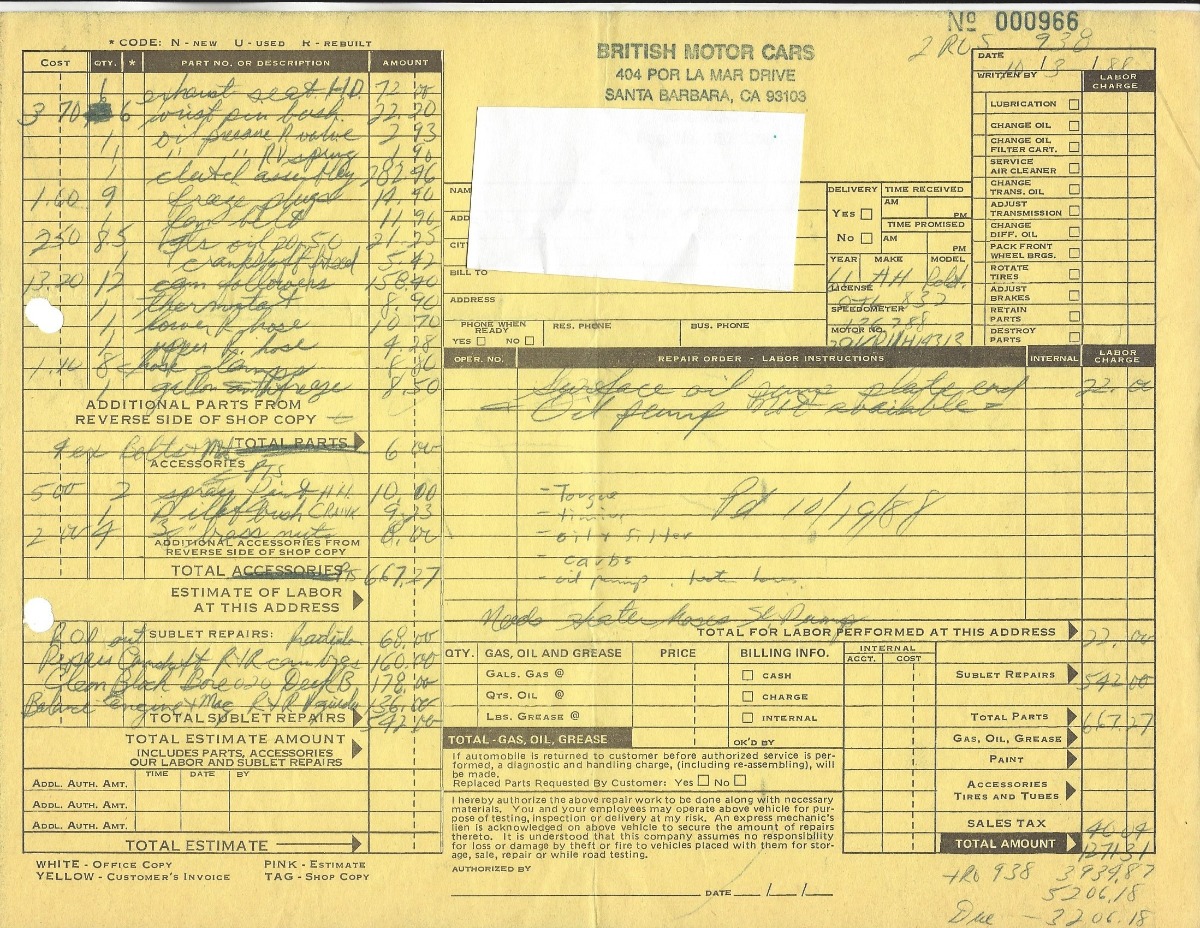 Nº 000966
2 RO'S 938
* CODE: N - NEW U - USED R - REBUILT
BRITISH MOTOR CARS
404 POR LA MAR DRIVE
SANTA BARBARA, CA 93103
DATE 10 / 3 / 88
WRITTEN BY
LABOR CHARGE
COST QTY. * PART NO. OR DESCRIPTION AMOUNT
6 exhaust seat H.D. 72 00
3 70 6 wrist pin bush. 22.20
1 oil pressure R valve 2 93
1 " " RV spring 1.90
1 clutch assembly 282.96
1.60 9 14.90
1 fan belt 11 90
2.50 8.5 qts oil 20/50 21.25
1 5.42
13.20 12 cam followers 158.40
1 thermostat 8.90
1 lower R. hose 10 70
1 upper R. hose 4.28
1.10 8 hose clamps 8.80
1 gallon antifreeze 8.50
ADDITIONAL PARTS FROM
REVERSE SIDE OF SHOP COPY
Bolts TOTAL PARTS 6 00
ACCESSORIES
5 00 2 spray paint H.H. 10.00
1 Pilot bush CRANK 9.23
2.00 4 brass nuts 8.00
ADDITIONAL ACCESSORIES FROM
REVERSE SIDE OF SHOP COPY
TOTAL ACCESSORIES Pts 667.27
ESTIMATE OF LABOR
AT THIS ADDRESS
R.O.P. out SUBLET REPAIRS: Radiator 68.00
R&R cam brgs 160.00
Clean Block Bore 020 Deck B 178.00
Balance engine + Mag R&R 136.00
TOTAL SUBLET REPAIRS 542 00
TOTAL ESTIMATE AMOUNT
INCLUDES PARTS, ACCESSORIES
OUR LABOR AND SUBLET REPAIRS
TIME DATE BY
ADDL. AUTH. AMT.
ADDL. AUTH. AMT.
ADDL. AUTH. AMT.
TOTAL ESTIMATE
WHITE - OFFICE COPY PINK - ESTIMATE
YELLOW - CUSTOMER'S INVOICE TAG - SHOP COPY
NAM
ADD
CIT
BILL TO
ADDRESS
PHONE WHEN READY YES NO RES. PHONE BUS. PHONE
DELIVERY YES NO
TIME RECEIVED AM PM
TIME PROMISED AM PM
YEAR MAKE MODEL
61 AH
LICENSE
832
SPEEDOMETER
126,288
MOTOR NO.
LUBRICATION
CHANGE OIL
CHANGE OIL FILTER CART.
SERVICE AIR CLEANER
CHANGE TRANS. OIL
ADJUST TRANSMISSION
CHANGE DIFF. OIL
PACK FRONT WHEEL BRGS.
ROTATE TIRES
ADJUST BRAKES
RETAIN PARTS
DESTROY PARTS
OPER. NO. REPAIR ORDER - LABOR INSTRUCTIONS INTERNAL LABOR CHARGE
Surface oil pump plate end 22.00
- Oil pump not available -
- Torque
- timing
- oil & filter
- carbs
- oil pump, heater hoses
Pd 10/19/88
Needs heater hoses
TOTAL FOR LABOR PERFORMED AT THIS ADDRESS 22.00
QTY. GAS, OIL AND GREASE PRICE BILLING INFO. INTERNAL ACCT. COST
GALS. GAS @ CASH
QTS. OIL @ CHARGE
LBS. GREASE @ INTERNAL
TOTAL - GAS, OIL, GREASE OK'D BY
If automobile is returned to customer before authorized service is performed, a diagnostic and handling charge, (including re-assembling), will be made.
Replaced Parts Requested By Customer: Yes No
I hereby authorize the above repair work to be done along with necessary
materials. You and your employees may operate above vehicle for pur-
pose of testing, inspection or delivery at my risk. An express mechanic's
lien is acknowledged on above vehicle to secure the amount of repairs
thereto. It is understood that this company assumes no responsibility
for loss or damage by theft or fire to vehicles placed with them for stor-
age, sale, repair or while road testing.
AUTHORIZED BY
DATE / /
SUBLET REPAIRS 542 00
TOTAL PARTS 667.27
GAS, OIL, GREASE
PAINT
ACCESSORIES
TIRES AND TUBES
SALES TAX 40 04
TOTAL AMOUNT 1271.31
+ RO 938 3934.87
5206.18
Due - 3206.18